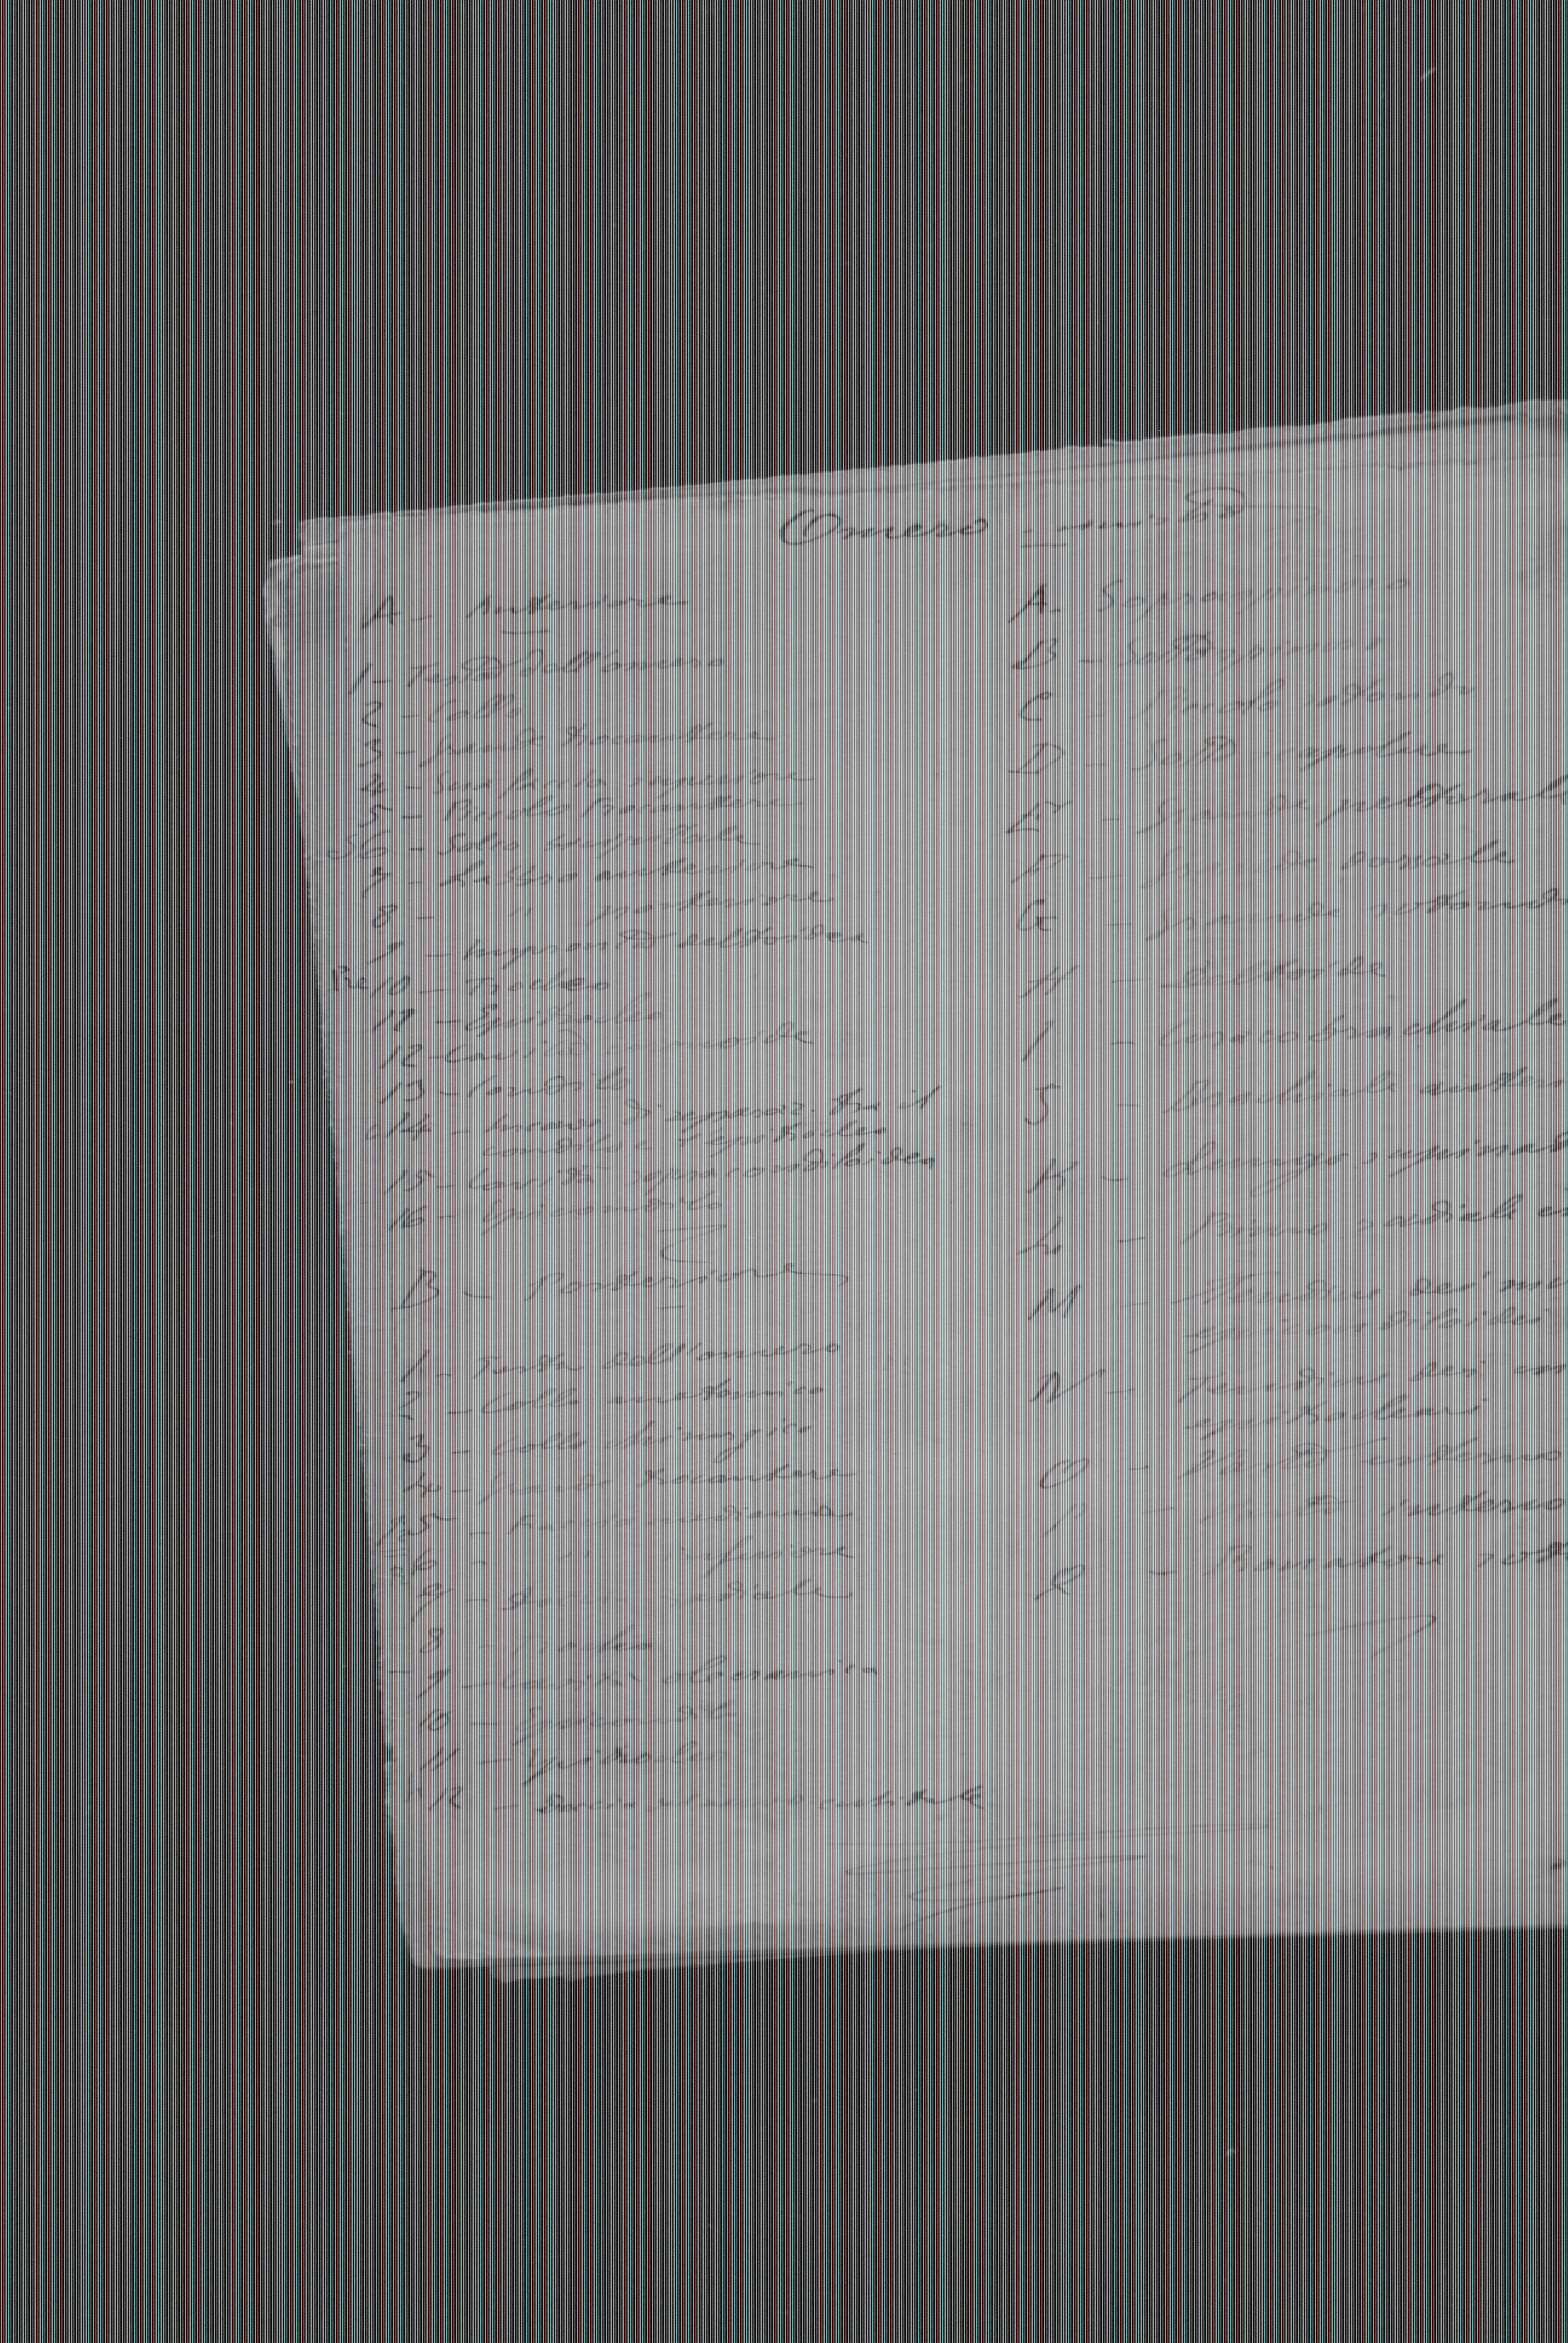 Omero
A - Anteriore
1 - Testa dell'omero
2 - Collo
3 - Grande trocantere
4 - superiore
5 - Piccolo trocantere
6 - Solco bicipitale
7 - Labbro anteriore
8 - " posteriore
9 - Impronta deltoidea
10 - Troclea
11 - Epitroclea
12 - Cavità coronoide
13 - Condilo
14 - Incavo di separaz. tra il
condilo e l'epitroclea
15 - Cavità sopracondiloidea
16 - Epicondilo
B - Posteriore
1 - Testa dell'omero
2 - Collo anatomico
3 - Collo chirurgico
4 - Grande trocantere
5 - Faccia mediana
6 - " inferiore
7 - Doccia radiale
8 - Troclea
9 - Cavità olecranica
10 - Epicondilo
11 - Epitroclea
12 - Doccia cubitale
A - Sopraspinoso
B - Sottospinoso
C - Piccolo rotondo
D - Sotto-scapolare
E - Grande pettorale
F - Grande dorsale
G - Grande rotondo
H - Deltoide
I - Coracobrachiale
J - Brachiale anter
K - Lungo supinat
L - Primo radiale es
M - Tendine dei mu
epicondiloidei
N - Tendine dei
epitrocleari
O - Vasto esterno
P - Vasto interno
Q - rot